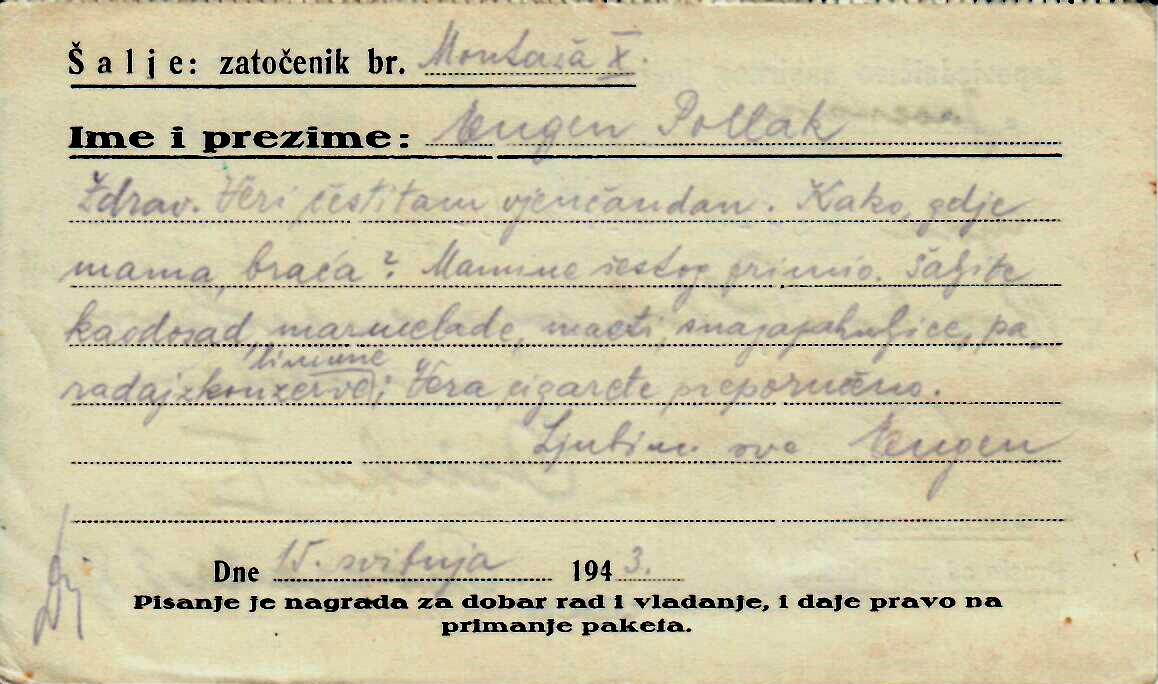 Šalje: zatočenik br. Montaža X.
Ime i prezime: Eugen Pollak
Zdrav. Veri čestitam vjenčandan. Kako, gdje
mama, braća? Mamine šestog primio. Šaljite
kaodosad, marmelade, masti, snagapahuljice, pa-
limune
radajzkonzerve; Vera cigarete preporučeno.
Ljubim sve Eugen
Dne 15. svibnja 1943.
Pisanje je nagrada za dobar rad i vladanje, i daje pravo na
primanje paketa.